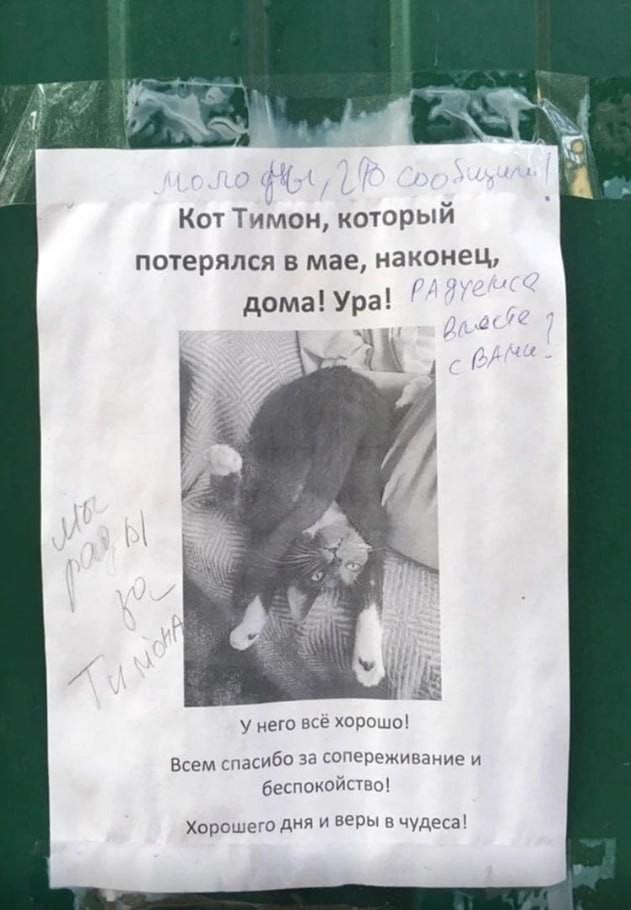 молодцы, что сообщили!
Кот Тимон, который
потерялся в мае, наконец,
дома! Ура!
РАдуемся
вместе
с ВАми!
мы
рады
за
Тимона
У него всё хорошо!
Всем спасибо за сопереживание и
беспокойство!
Хорошего дня и веры в чудеса!